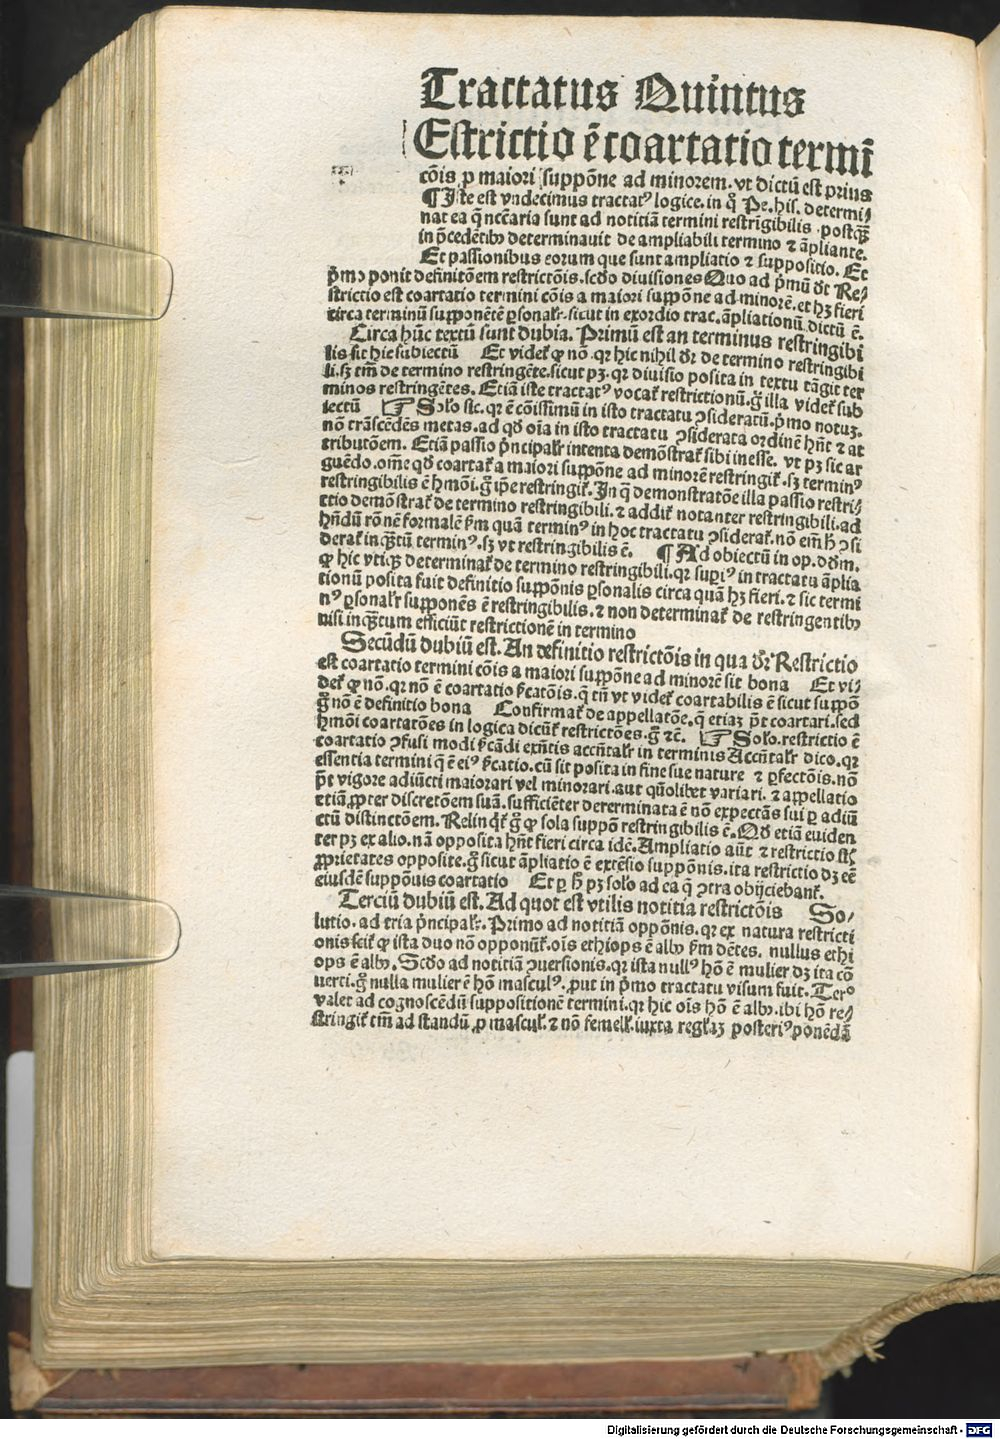 Tractatus Quintus
Estrictio ē coartatio termī
cōis ꝓ maiori suppōne ad minorem. vt dictū est prius
¶ Iste est vndecimus tractatꝰ logice. in q̊ Pe. his. determi⸗
nat ea q̄ necc̄aria sunt ad notitiā termini restrīgibilis . postq̄ꝫ
in p̄cedētibꝰ determinauit de ampliabili termino ⁊ āpliante.
Et passionibus eorum que sunt ampliatio ⁊ suppositio. Et
p̄mo ponit definitōem restrictōis. scd̄o diuisiones Quo ad p̄mū dr̄ Re⸗
strictio est coartatio termini cōis a maiori suppōne ad minorē. et hꝫ fieri
circa terminū supponētē ꝑsonalr̄. sicut in exordio trac. āpliationū dictū ē.
Circa hūc textū sunt dubia. Primū est an terminus restringibi
lis sit hic subiectū Et videt̄ ꝙ nō. qꝛ hic nihil dr̄ de termino restringibi
li. sꝫ tm̄ de termino restringēte. sicut pꝫ. qꝛ diuisio posita in textu tāgit ter
minos restringētes. Etiā iste tractatꝰ vocat̄ restrictionū. g̊ illa videt̄ sub
iectū ☞ Solo sic. qꝛ ē cōissimū in isto tractatu ꝯsideratū. p̄mo notuꝫ.
nō trāscēdēs metas. ad qd̄ oīa in isto tractatu ꝯsiderata ordinē hn̄t ⁊ at
tributōem. Etiā passio p̄ncipalr̄ intenta demōstrat̄ sibi inesse. vt pꝫ sic ar
guēdo. om̄e qd̄ coartat̄ a maiori suppōne ad minorē restringit̄. sꝫ terminꝰ
restringibilis ē hmōi. g̊ ip̄e restringit̄. In q̄ demonstratōe illa passio restri⸗
ctio demōstrat̄ de termino restringibili. ⁊ addit̄ notanter restringibili. ad
hn̄dū rōnē formalē s̄m quā terminꝰ in hoc tractatu ꝯsiderat̄. nō em̄ h̄ ꝯsi
derat̄ inq̄ꝫtū terminꝰ. sꝫ vt restringibilis ē. ¶ Ad obiectū in op. dd̄m.
ꝙ hic vtiqꝫ determinat̄ de termino restringibili. qꝛ supiꝰ in tractatu āplia
tionū posita fuit definitio suppōnis ꝑsonalis circa quā hꝫ fieri. ⁊ sic termi
nꝰ ꝑsonalr̄ supponēs ē restringibilis. ⁊ non determinat̄ de restringentibꝰ
nisi inq̄ꝫtum efficiūt restrictionē in termino
Secūdū dubiū est. An definitio restrictōis in qua dr̄ Restrictio
est coartatio termini cōis a maiori suppōne ad minorē sit bona Et vi⸗
det̄ ꝙ nō. qꝛ nō ē coartatio s̄catōis. q̄ tn̄ vt videt̄ coartabilis ē sicut suppō
g̊ nō ē definitio bona Confirmat̄ de appellatōe. q̄ etiaꝫ pōt coartari. sed
hmōi coartatōes in logica dicūt̄ restrictōes. g̊ ⁊c̄. ☞ Solo. restrictio ē
coartatio ꝯfusi modi s̄cādi exn̄tis accn̄talr̄ in terminis Accn̄talr̄ dico. qꝛ
essentia termini q̄ ē eiꝰ s̄catio. cū sit posita in fine sue nature ⁊ ꝑfectōis. nō
pōt vigore adiūcti maiorari vel minorari. aut qn̄olibet variari. ⁊ appellatio
etiā ꝓpter discretōem suā. sufficiēter determinata ē nō expectās sui ꝑ adiū
ctū distinctōem. Relinq̄t̄ g̊ ꝙ sola suppō restringibilis ē. Qd̄ etiā euiden
ter pꝫ ex alio. nā opposita hn̄t fieri circa idē. Ampliatio aūt ⁊ restrictio st̄
ꝓprietates opposite. g̊ sicut āpliatio ē extēsio suppōnis. ita restrictio dꝫ eē
eiusdē suppōnis coartatio Et ꝑ h̄ pꝫ solo ad ea q̄ ꝯtra obijciebant̄.
Terciū dubiū est. Ad quot est vtilis notitia restrictōis So⸗
lutio. ad tria p̄ncipalr̄. Primo ad notitiā oppōnis. qꝛ ex natura restricti
onis scit̄ ꝙ ista duo nō opponūt̄. oīs ethiops ē albꝰ s̄m dētes. nullus ethi
ops ē albꝰ. Scd̄o ad notitiā ꝯuersionis. qꝛ ista nullꝰ hō ē mulier dꝫ ita cō
uerti. g̊ nulla mulier ē hō masculꝰ. ꝓut in p̄mo tractatu visum fuit. Tero
valet ad cognoscēdū suppositionē termini. qꝛ hic oīs hō ē albꝰ. ibi hō re⸗
stringit̄ tm̄ ad standū ꝓ mascul̄. ⁊ nō femell̄. iuxta reglaꝫ posteriꝰ ponēdā
Digitalisierung gefördert durch die Deutsche Forschungsgemeinschaft - DFG